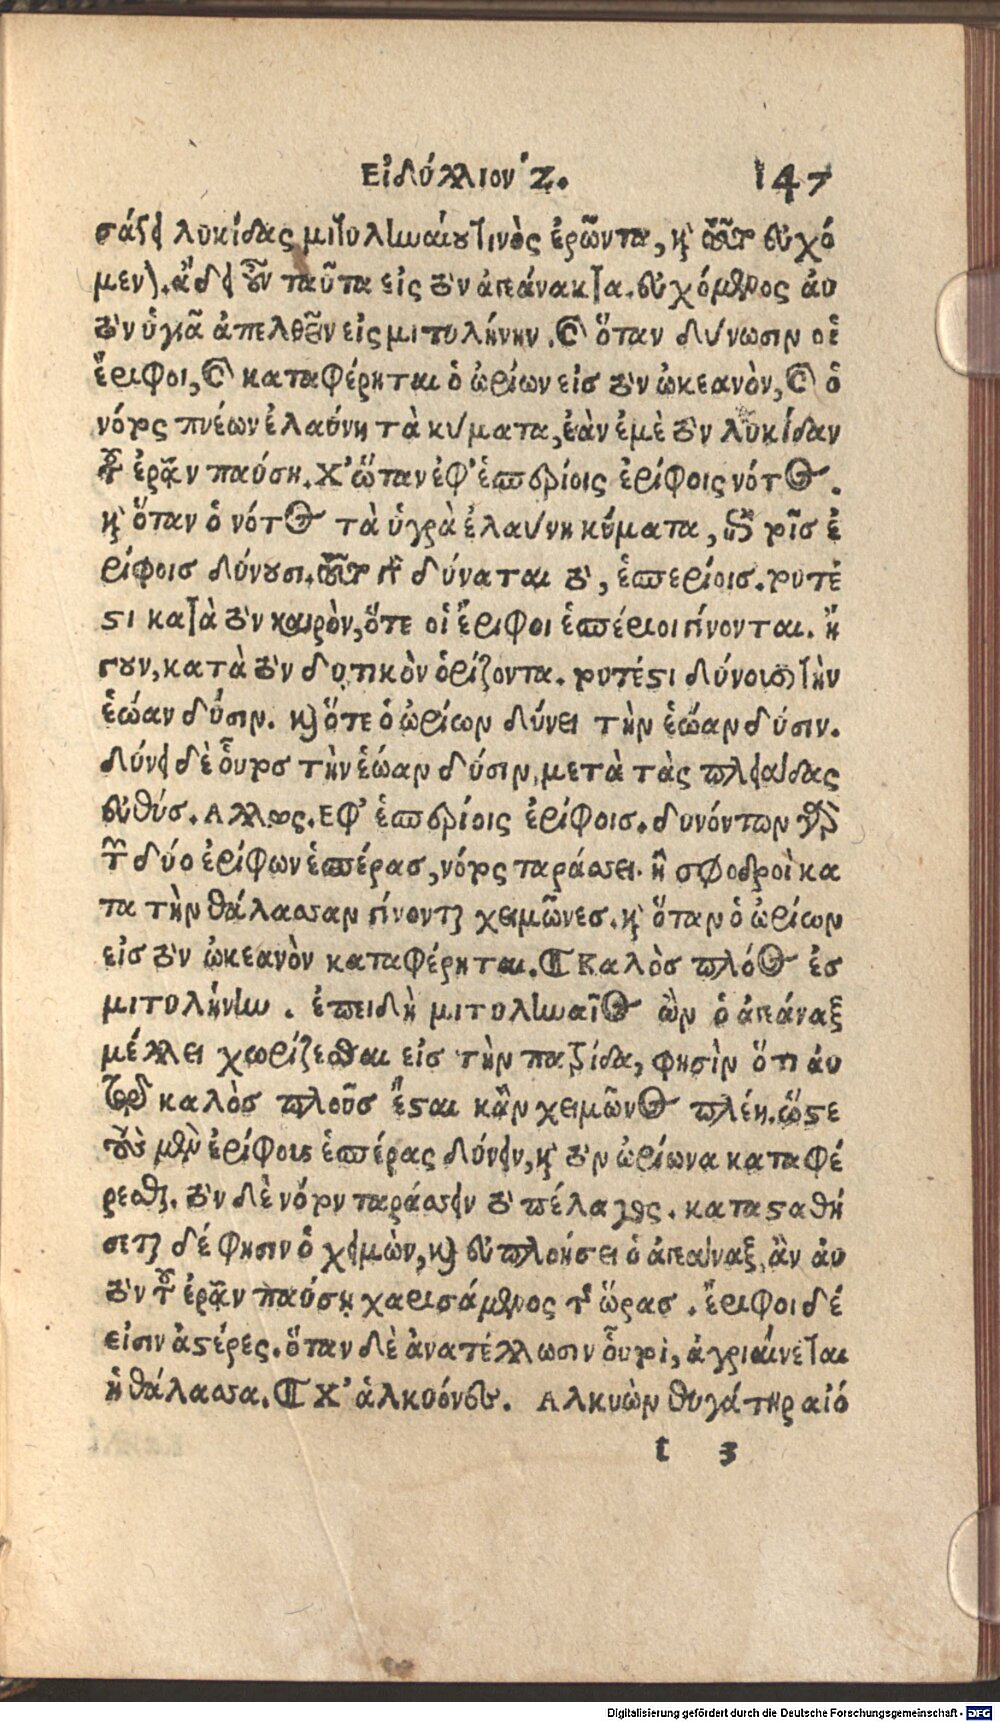 Εἰδύλλιον Ζ. 147
σάγει λυκίδας μιτυληναίου τινὸς ἐρῶντα, καὶ οὕτως εὐχό
μενος. ᾄδει οὖν ταῦτα εἰς τὸν ἀπεάνακτα. εὐχόμενος αὐ
τὸν ὑγιᾶ ἀπελθεῖν εἰς μιτυλήνην. καὶ ὅταν δύνωσιν οἱ
ἔριφοι, καὶ καταφέρηται ὁ ὠρίων εἰσ τὸν ὠκεανὸν, καὶ ὁ
νότος πνέων ἐλαύνη τὰ κύματα, ἐὰν ἐμὲ τὸν λυκίδαν
τοῦ ἐρᾷν παύση. Χ' ὥταν ἐφ' ἑσπερίοις ἐρίφοις νότος.
καὶ ὅταν ὁ νότος τὰ ὑγρὰ ἐλαύνη κύματα, ἐπὶ τοῖσ ἐ
ρίφοισ δύνουσι. οὕτω γὰρ δύναται τὸ, ἑσπερίοισ. τουτέ
στι κατὰ τὸν καιρὸν, ὅτε οἱ ἔριφοι ἑσπέριοι γίνονται. ἤ
γουν, κατὰ τὸν δυτικὸν ὁρίζοντα. τουτέστι δύνουσι τὴν
ἑώαν δύσιν. καὶ ὅτε ὁ ὠρίων δύνει τὴν ἑῴαν δύσιν.
δύνει δὲ οὗτοσ τὴν ἑώαν δύσιν, μετὰ τὰς πλειάδας
εὐθύσ. Αλλως. Εφ' ἑσπερίοις ἐρίφοισ. δυνόντων γὰρ
τῶν δύο ἐρίφων ἑσπέρασ, νότος ταράσσει. ἢ σφοδροὶ κα
τα τὴν θάλασσαν γίνονται χειμῶνεσ. καὶ ὅταν ὁ ὠρίων
εἰσ τὸν ὠκεανὸν καταφέρηται. ¶ Καλὸσ πλόος ἐσ
μιτυλήνην. ἐπειδὴ μιτυληναῖος ὢν ὁ ἀπεάναξ
μέλλει χωρίζεσθαι εἰσ τὴν πατρίδα, φησὶν ὅτι αὐ
τῷ καλὸσ πλοῦσ ἔσται κἂν χειμῶνος πλέη. ὥστε
τοὺς μὲν ἐρίφουσ ἑσπέρας δύνειν, καὶ τὸν ὠρίωνα καταφέ
ρεσθαι. τὸν δὲ νότον ταράσσειν τὸ πέλαγος. κατασταθή
σεται δέ φησιν ὁ χειμὼν, καὶ εὐπλοήσει ὁ ἀπεάναξ, ἂν αὐ
τὸν τοῦ ἐρᾷν παύση χαρισάμενος τῆς ὥρασ. ἔριφοι δέ
εἰσιν ἀστέρες. ὅταν δὲ ἀνατέλλωσιν οὗτοι, ἀγριαίνεται
ἡ θάλασσα. ¶ Χ' ἁλκυόνες. Αλκυὼν θυγάτηρ αἰό
t 3
Digitalisierung gefördert durch die Deutsche Forschungsgemeinschaft - DFG